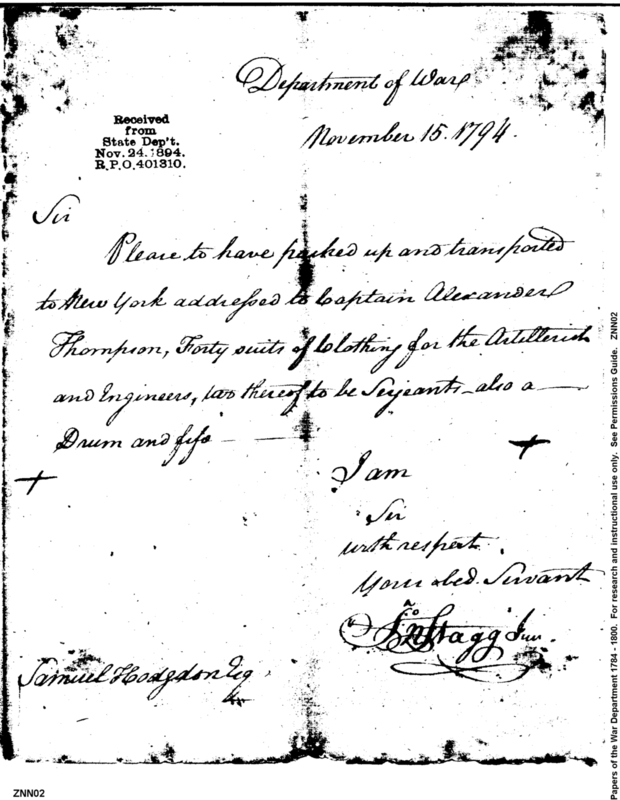 Department of War
November 15. 1794.
Received
from
State Dep't.
Nov. 24. 1894.
R.P.O. 401310.
Sir
Please to have packed up and transported
to New York addressed to Captain Alexander
Thompson, Forty suits of Clothing for the Artillerists
and Engineers, two thereof to be Serjeants also a
Drum and fife
I am
Sir
with respect
Your obed. Servant
Jno Stagg Jun.
Samuel Hodgdon Esq
ZNN02
Papers of the War Department 1784 - 1800. For research and instructional use only. See Permissions Guide. ZNN02